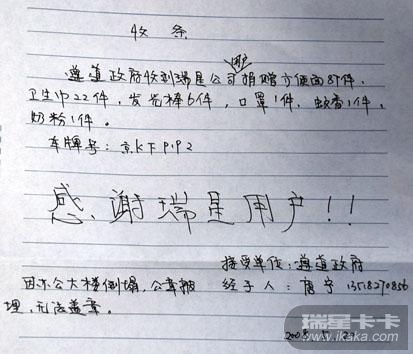 收 条
用户
遵道政府收到瑞星公司捐赠方便面87件、
卫生巾22件，发光棒6件，口罩1件，蚊香1件，
奶粉1件。
车牌号：京KFP1P2
感谢瑞星用户!!
接受单位：遵道政府
因办公大楼倒塌，公章被
经手人：唐宇 13518270856
埋，无法盖章。
2008.5
瑞星卡卡
www.ikaka.com